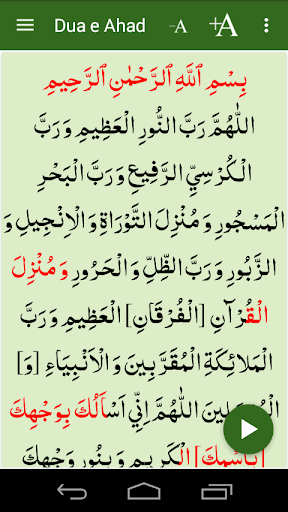 Dua e Ahad -A +A
بِسْمِ ٱللَّهِ ٱلرَّحْمَٰنِ ٱلرَّحِيمِ
اَللّٰهُمَّ رَبَّ النُّورِ الْعَظِيمِ وَ رَبَّ
الْكُرْسِيِّ الرَّفِيعِ وَ رَبَّ الْبَحْرِ
الْمَسْجُورِ وَ مُنْزِلَ التَّوْرَاةِ وَ الْاِنْجِيلِ وَ
الزَّبُورِ وَ رَبَّ الظِّلِّ وَ الْحَرُورِ وَ مُنْزِلَ
الْقُرْآنِ [الْفُرْقَانِ] الْعَظِيمِ وَ رَبَّ
الْمَلَائِكَةِ الْمُقَرَّبِينَ وَ الْاَنْبِيَاءِ [وَ]
اَللّٰهُمَّ اِنِّي اَسْاَلُكَ بِوَجْهِكَ
[بِاسْمِكَ] الْكَرِيمِ وَ بِنُورِ وَجْهِكَ